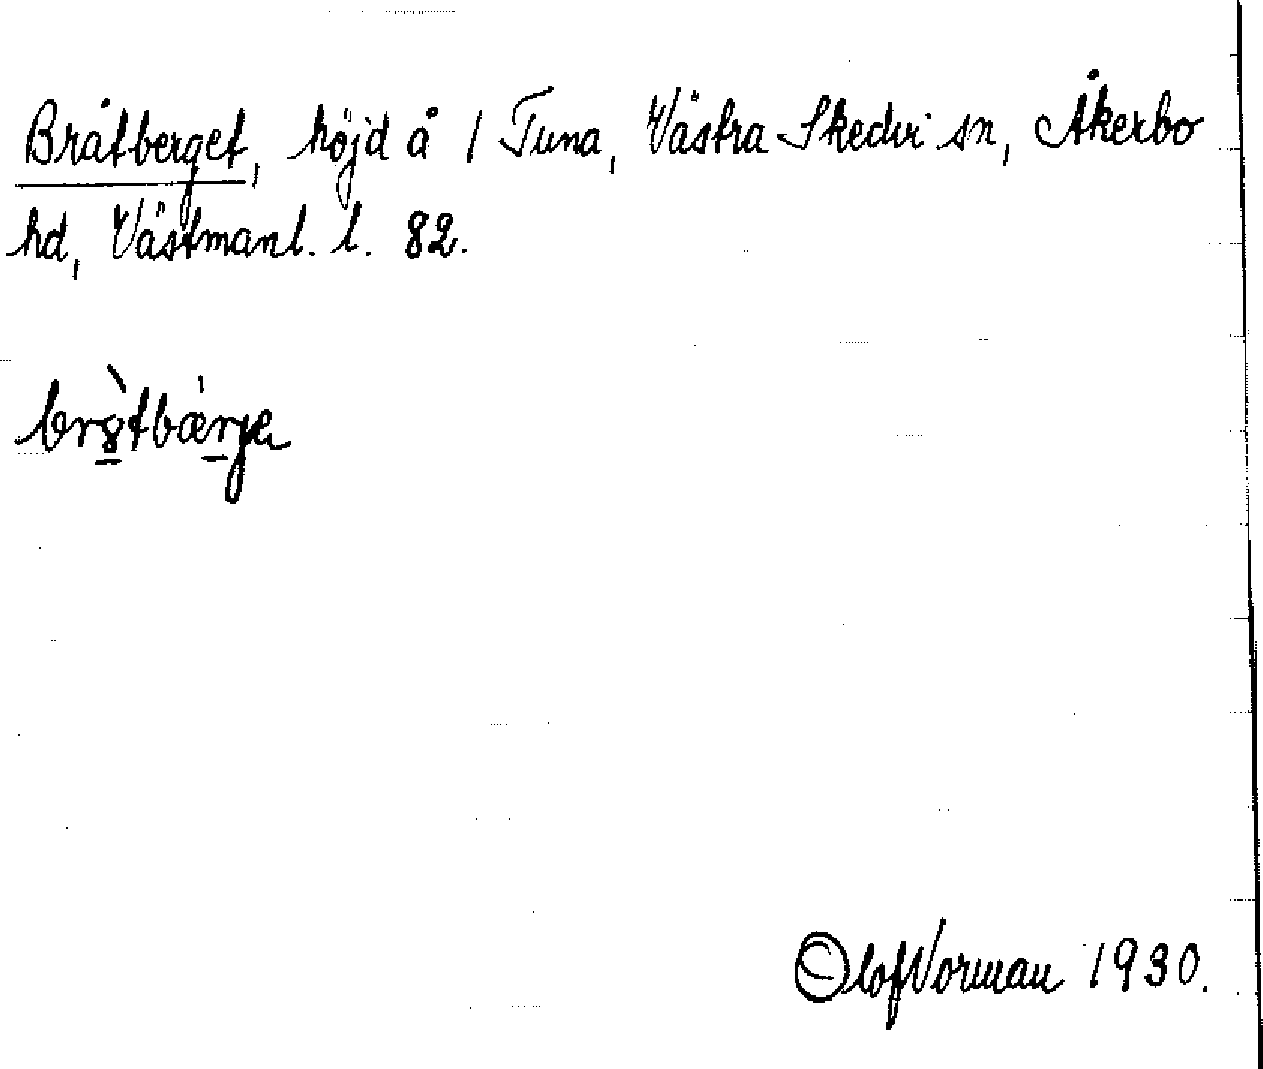 Bråtberget, höjd å 1 Tuna, Västra Skedvi sn, Åkerbo
hd, Västmanl. l. 82.
br8̱̀tbǽ̱rje
Olof Norman 1930.